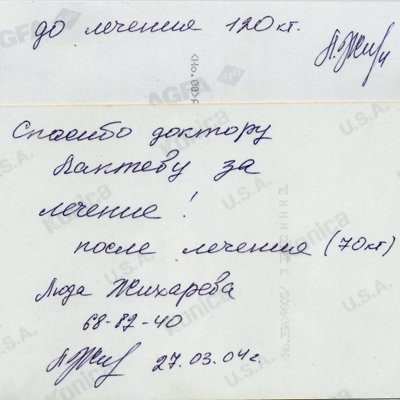 до лечения 120 кг.
Л. Жих
Спасибо доктору
Лактеву за
лечение!
после лечения (70 кг)
Люда Жихарева
68-87-40
27.03.04 г.
AGFA
Konica
U.S.A.